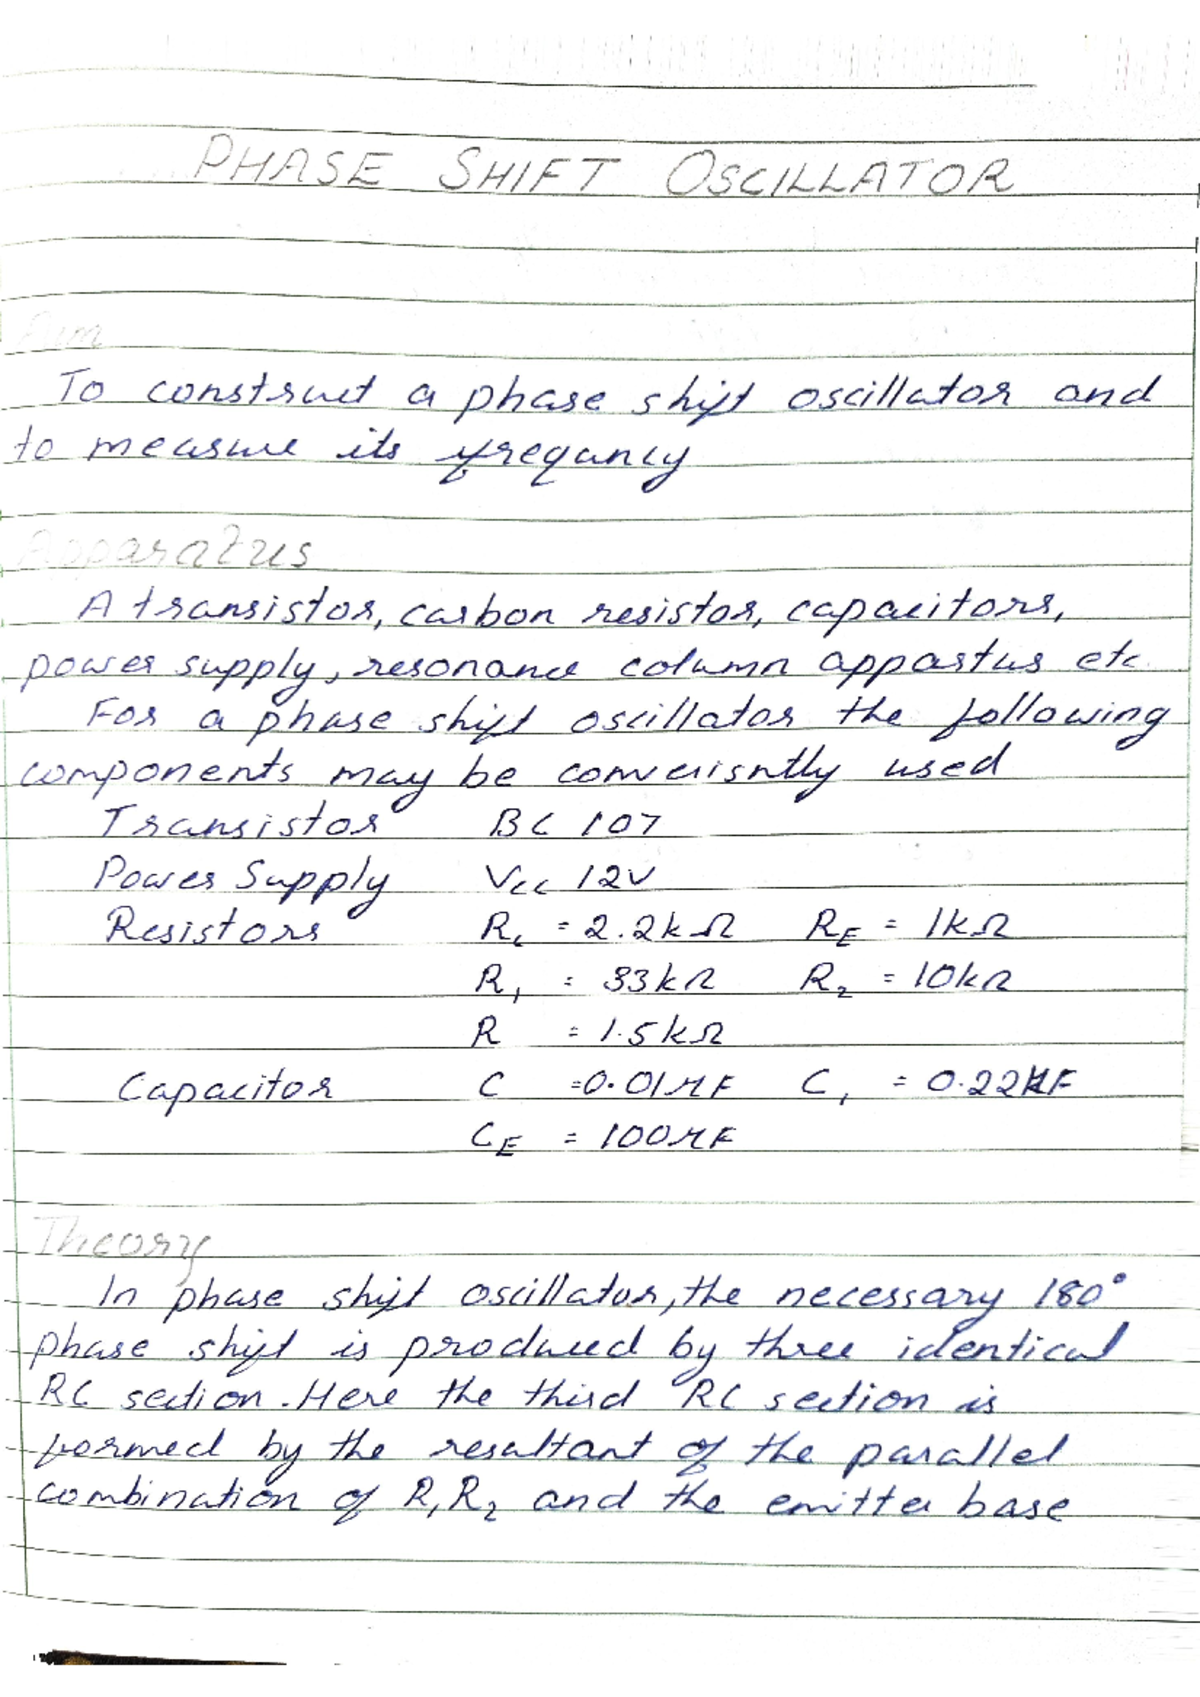 PHASE SHIFT OSCILLATOR
Aim
To construct a phase shift oscillator and
to measure its freqancy
Apparatus
A transistor, carbon resistor, capacitors,
power supply, resonance column appartus etc
For a phase shift oscillator the following
components may be converisntly used
Transistor BC 107
Power Supply Vcc 12V
Resistors Rc = 2.2kΩ RE = 1kΩ
R1 = 33kΩ R2 = 10kΩ
R = 1.5kΩ
Capacitor C =0.01μF C1 = 0.22μF
CE = 100μF
Theory
In phase shift oscillator, the necessary 180°
phase shift is produced by three identical
RC section. Here the third RC section is
formed by the resultant of the parallel
combination of R1R2 and the emitter base